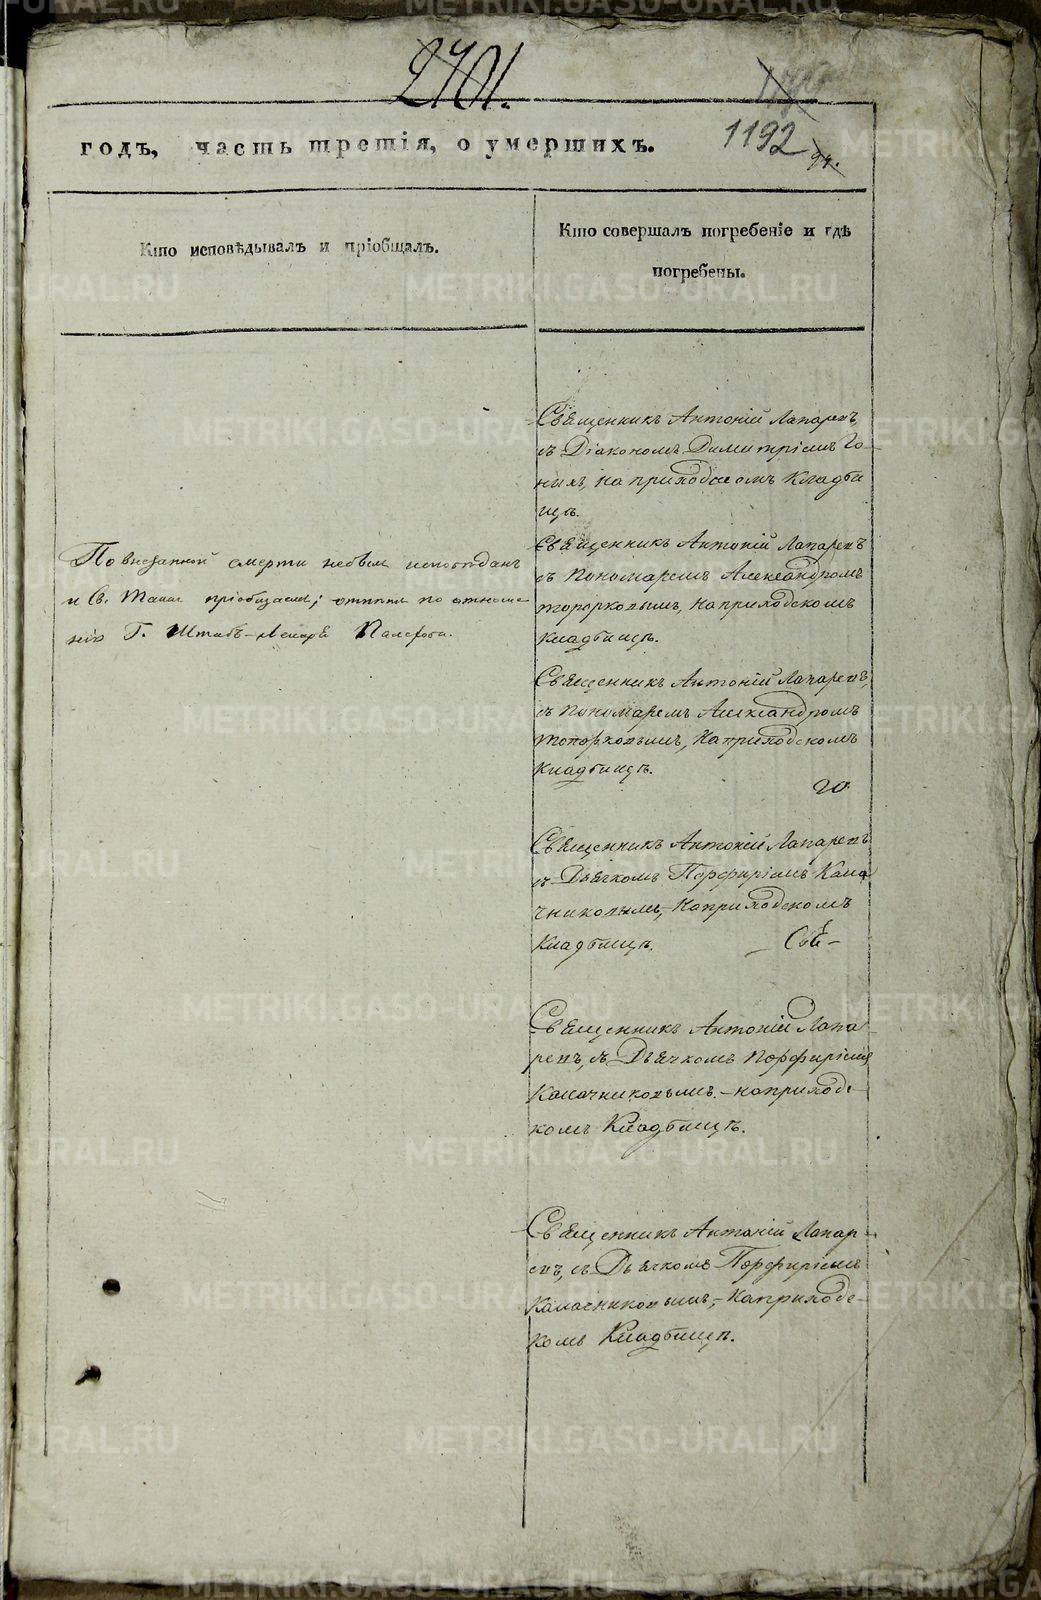 2701.
1192
94.
годъ, часть третія, о умершихъ.
Кто исповѣдывалъ и пріобщалъ.
Кто совершалъ погребеніе и гдѣ
погребены.
Священникъ Антоній Лапаревъ,
съ Діакономъ Димитріемъ
на приходскомъ Кладби
щѣ.
По внезапной смерти небылъ исповѣданъ
и Св. Таинъ пріобщаемъ; по отноше
нію Г. Штабъ-лекаря
Священникъ Антоній Лапаревъ
съ Пономаремъ Александромъ
Топорковымъ, на приходскомъ
Кладбищѣ.
Священникъ Антоній Лапаревъ,
съ Пономаремъ Александромъ
Топорковымъ, на приходскомъ
Кладбищѣ.
Священникъ Антоній Лапаревъ
съ Дьячкомъ Порфиріемъ Кала
чниковымъ, на приходскомъ
Кладбищѣ.
Священникъ Антоній Лапа
ревъ, съ Дьячкомъ Порфиріемъ
Калачниковымъ. – на приход
скомъ Кладбищѣ.
Священникъ Антоній Лапар
евъ, съ Дьячкомъ Порфиріемъ
Калачниковымъ, – на приходс
комъ Кладбищѣ.
METRIKI.GASO-URAL.RU